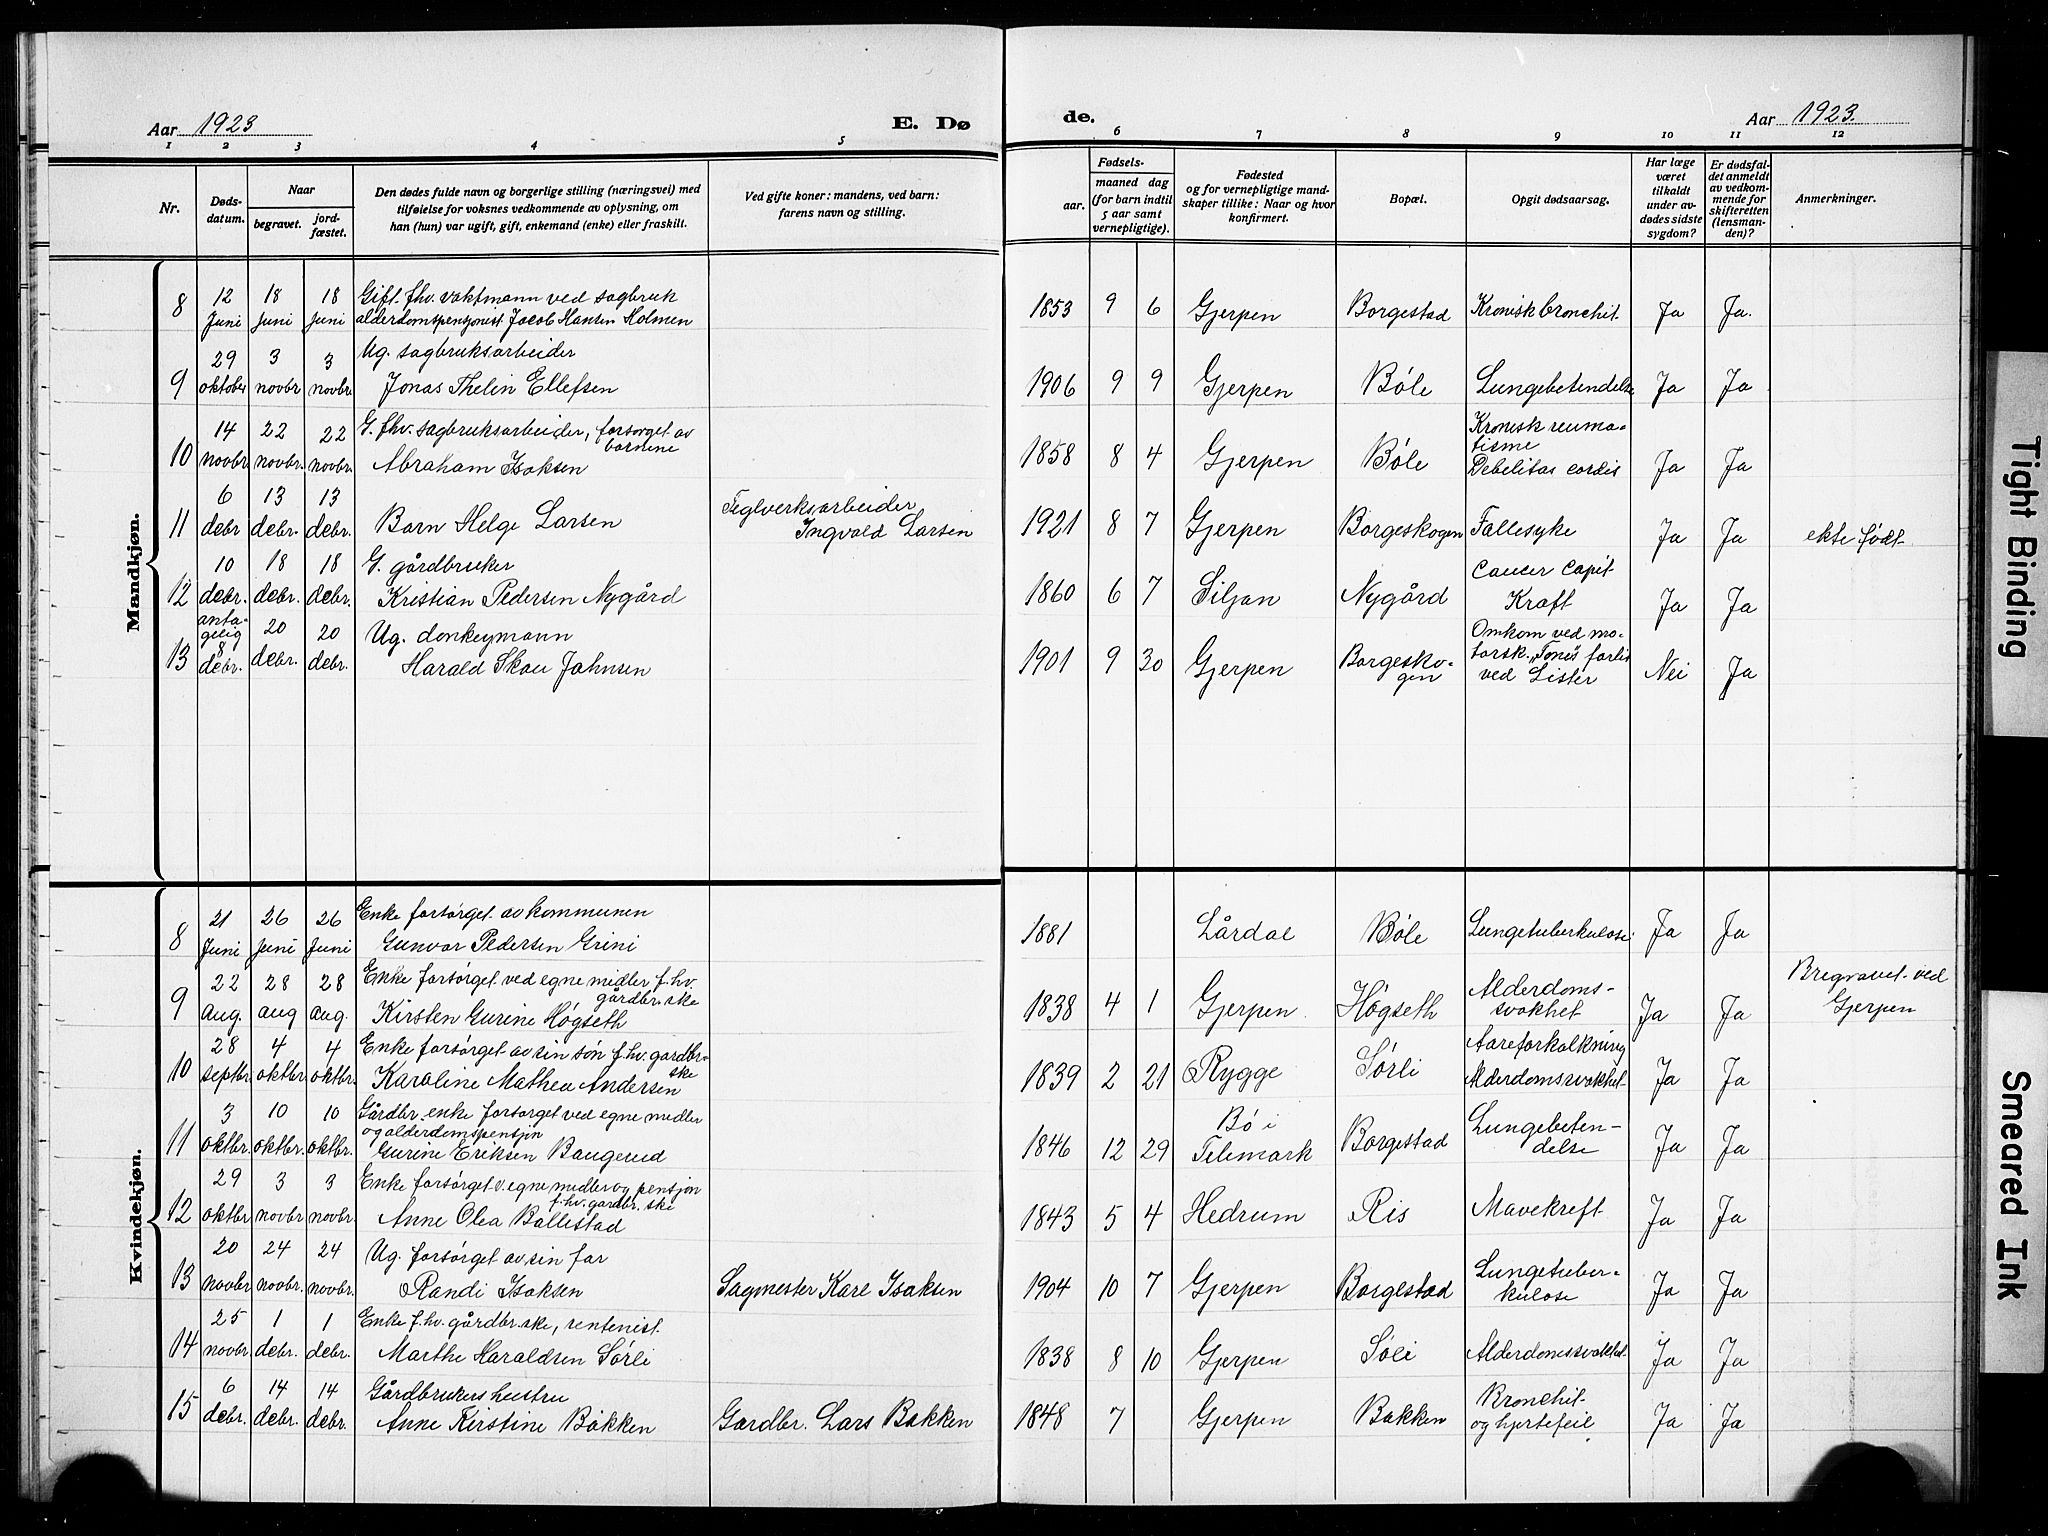 Aar 1923
E. Dø
de.
Aar 1923.
1 2 3 4 5 6 7 8 9 10 11 12
Nr.
Døds-
datum.
Naar
begravet.
jord-
fæstet.
Den dødes fulde navn og borgerlige stilling (næringsvei) med
tilføielse for voksnes vedkommende av oplysning, om
han (hun) var ugift, gift, enkemand (enke) eller fraskilt.
Ved gifte koner: mandens, ved barn:
farens navn og stilling.
Fødsels-
aar.
maaned dag
(for barn indtil
5 aar samt
vernepligtige).
Fødested
og for vernepligtige mand-
skaper tillike: Naar og hvor
konfirmert.
Bopæl.
Opgit dødsaarsag.
Har læge
været
tilkaldt
under av-
dødes sidste
sygdom?
Er dødsfal-
det anmeldt
av vedkom-
mende for
skifteretten
(lensman-
den)?
Anmerkninger.
Mandkjøn.
8 12 Juni 18 Juni 18 Juni
Gift. fhv. vaktmann ved sagbruk
alderdomspensjonist Jacob Hansen Holmen
1853 9 6 Gjerpen Borgestad Kronisk bronchit. Ja Ja.
9 29 oktober 3 novbr 3 novbr
Ug. sagbruksarbeider
Jonas Thelin Ellefsen
1906 9 9 Gjerpen Bøle Lungebetendelse Ja Ja
10 14 novbr 22 novbr. 22 novbr.
G. fhv. sagbruksarbeider, forsørget av
barnene
Abraham Isaksen
1858 8 4 Gjerpen Bøle
Kronisk reuma-
tisme
Debelitas cordis Ja Ja
11 6 debr 13 debr. 13 debr.
Barn Helge Larsen
Teglverksarbeider
Ingvald Larsen
1921 8 7 Gjerpen Borgeskogen Fallesyke Ja Ja ekte født
12 10 debr. 18 debr. 18 debr.
G. gårdbruker
Kristian Pedersen Nygård
1860 6 7 Siljan Nygård
Cancer Capit
Kraft Ja Ja
13 anta-
gelig
8
debr. 20 debr. 20 debr.
Ug. donkeymann
Harald Skau Johnsen
1901 9 30 Gjerpen
Borgesko-
gen
Omkom ved mo-
torsk. „Tones" forlis
ved Lister Nei Ja
Kvindekjøn.
8 21 Juni 26 Juni 26 Juni
Enke forsørget av kommunen
Gunvor Pedersen Grini
1881 Lårdal Bøle Lungetuberkulose. Ja Ja
9 22 aug. 28 aug 28 aug.
Enke forsørget ved egne midler f.hv.
gårdbr.ske
Kirsten Gurine Høgseth
1838 4 1 Gjerpen. Høgseth
Alderdoms-
svakhet Ja Ja
Bregravet ved
Gjerpen
10 28 septbr. 4 oktbr. 4 oktbr.
Enke forsørget av sin søn f.hv. gardbr-
ske
Karoline Mathea Andersen
1839 2 21 Rygge Sørli
Aareforkalkning
Alderdomssvakhet Ja Ja
11 3 oktbr. 10 oktbr. 10 oktbr.
Gårdbr. enke forsørget ved egne medler
og alderdomspensjon
Gurine Eriksen Baugerud
1846 12 29
Bø i
Telemark Borgestad
Lungebeten-
delse Ja Ja
12 29 oktbr 3 novbr 3 novbr.
Enke forsørget v. egne medler og pensjon
f.hv. gardbr.ske
Anne Olea Ballestad
1843 5 4 Hedrum Ris Mavekreft Ja Ja
13 20 novbr 24 novbr. 24 novbr.
Ug. forsørget av sin far
Randi Isaksen
Sagmester Karl Isaksen
1904 10 7 Gjerpen Borgestad
Lungetuber-
kulose Ja Ja
14 25 novbr 1 debr. 1 debr.
Enke f.hv. gårdbr.ske, rentenist.
Marthe Haraldsen Sørli
1838 8 10 Gjerpen Søli Alderdomssvakhet Ja Ja
15 6 debr. 14 debr. 14 debr.
Gårdbrukers hustru
Anne Kirstine Bakken
Gardbr. Lars Bakken
1848 7 Gjerpen Bakken
Bronchit
og hjertefeil Ja Ja
Tight Binding
Smeared Ink